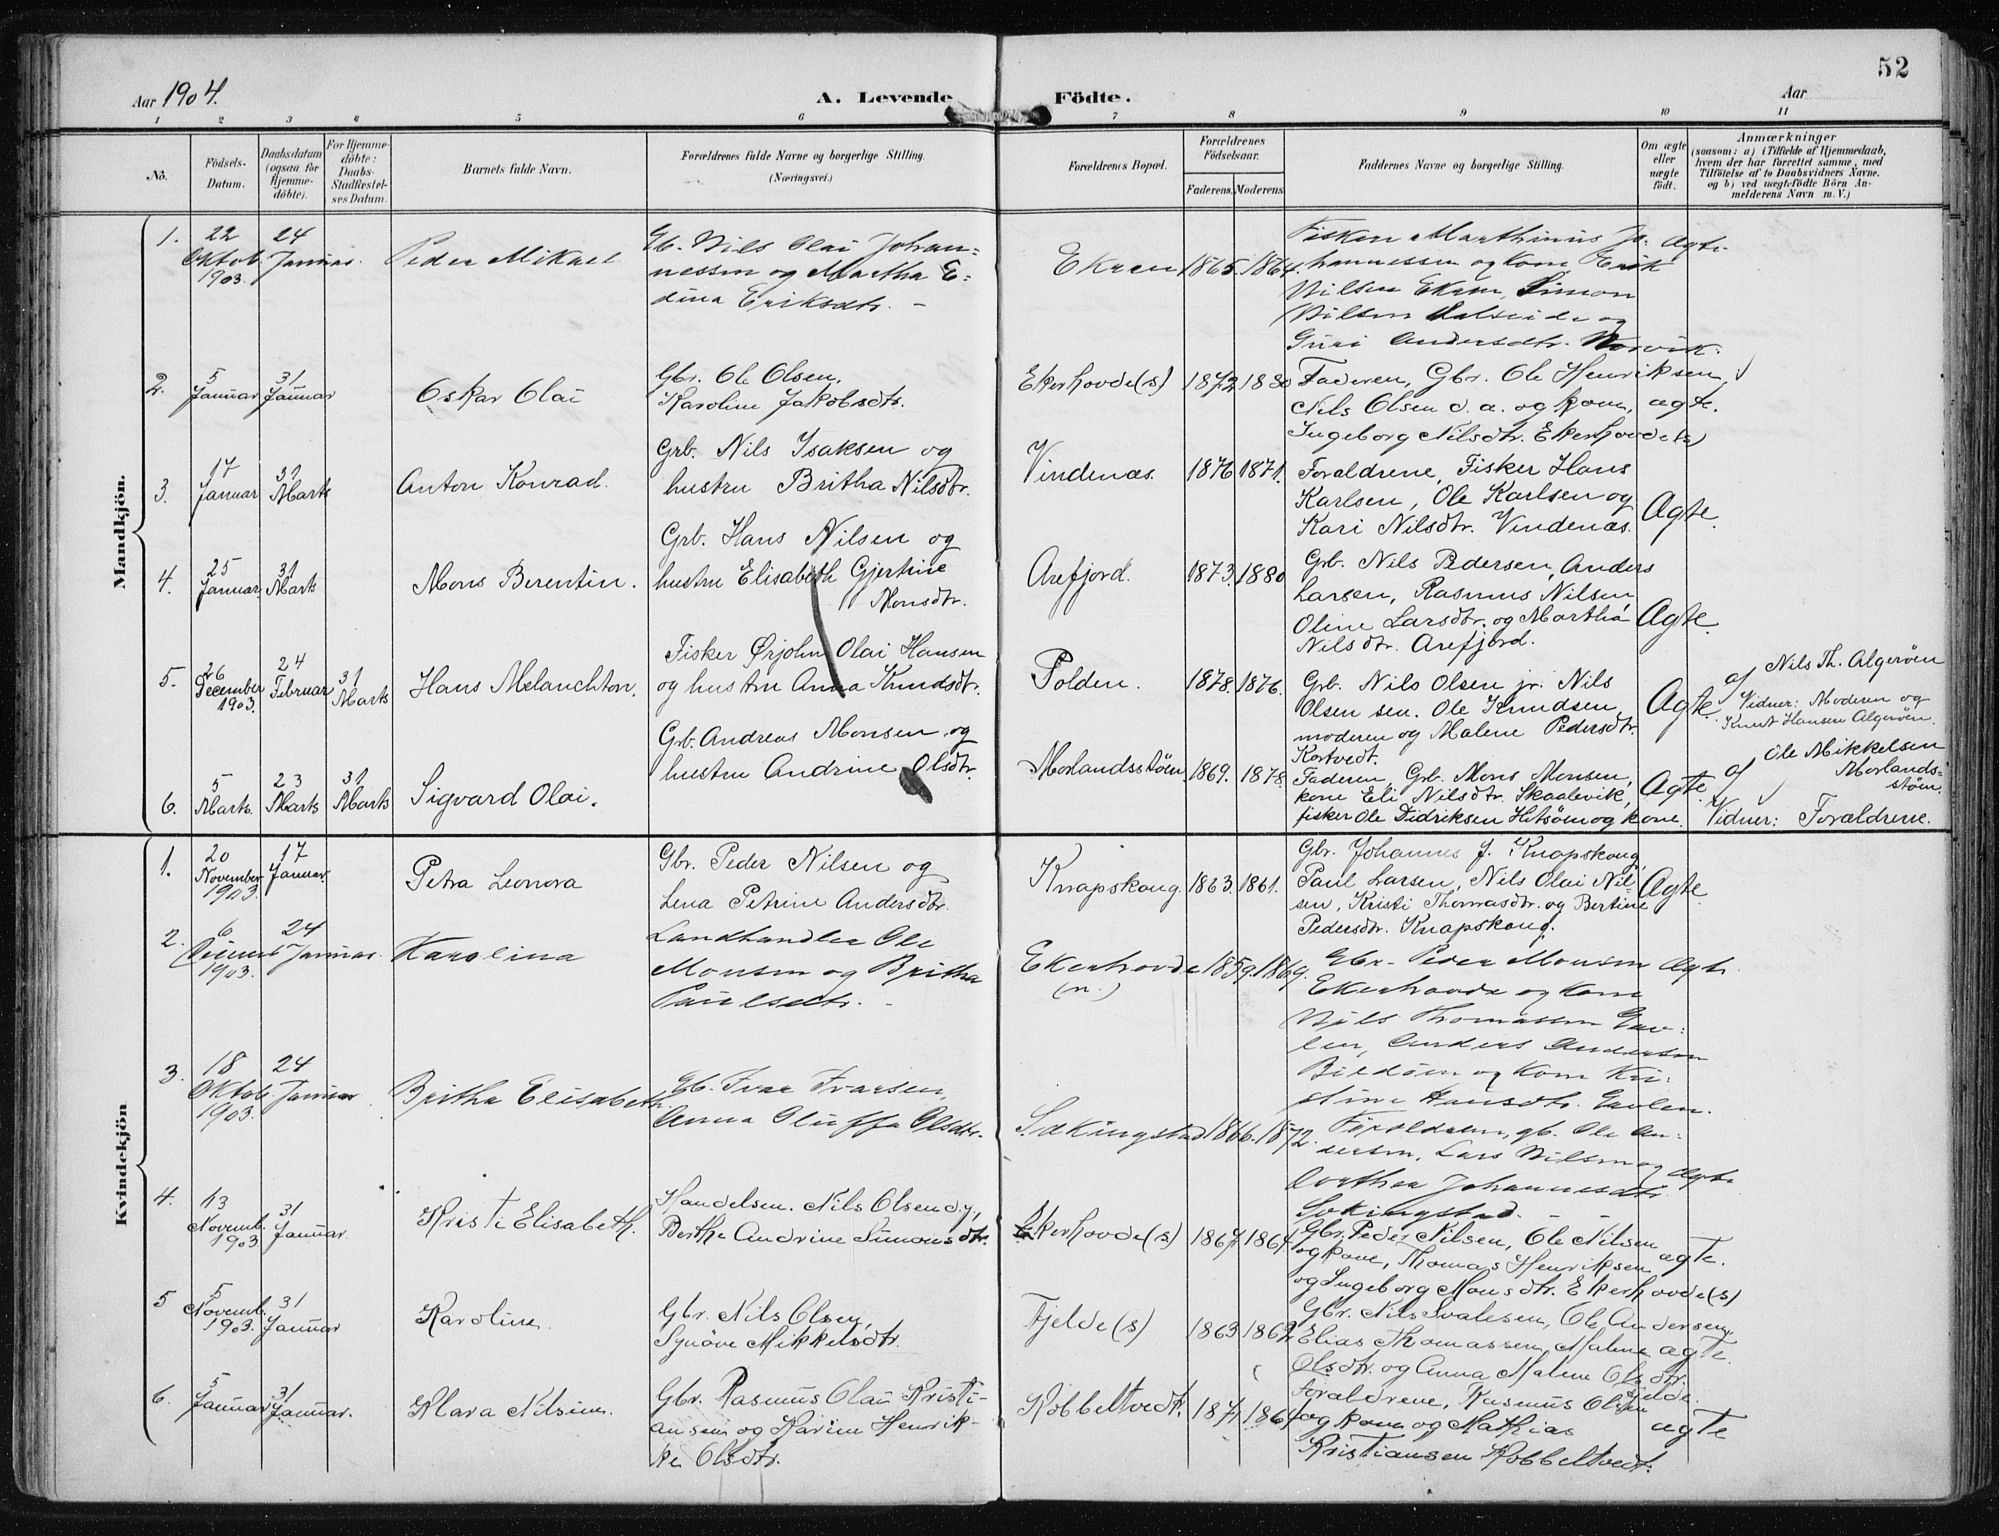 52
Aar 1904.
A. Levende Födte.
Aar
1 2 3 4 5 6 7 8 9 10 11
No.
Födsels-
Datum.
Daabsdatum
(ogsaa for
Hjemme-
döbte).
For Hjemme-
döbte:
Daabs-
Stadfæstel-
ses Datum.
Barnets fulde Navn.
Forældrenes fulde Navne og borgerlige Stilling.
(Næringsvei.)
Forældrenes Bopæl.
Forældrenes
Födselsaar.
Faderens. Moderens.
Faddernes Navne og borgerlige Stilling.
Om ægte
eller
uægte
födt.
Anmærkninger
(saasom: a) i Tilfælde af Hjemmedaab,
hvem der har forrettet samme, med
Tilföielse af to Daabsvidners Navne,
og b) ved uægtefödte Börn An-
melderens Navn m. V.)
Mandkjön.
1.
22
Oktob.
1903.
24
Januar.
Peder Mikael
Gb. Nils Olai Johan-
nessen og Martha E-
dina Eriksdtr. -
Ekren
1865. 1864.
Fisker Marthinus Jo-
hannessen og kone, Erik
Nilsen Ekren, Simon
Nilsen og
Guri Andersdtr.
Ægte
2.
5
Januar
31
Januar
Oskar Olai
Gbr. Ole Olsen,
Karoline Jakobsdtr.
Ekerhovde(s)
1872 1880
Faderen, Gbr. Ole Henriksen,
Nils Olsen d. a. og kone,
Ingeborg Nilsdtr. Ekerhovde(s)
ægte.
3.
17
Januar
31
Marts
Anton Konrad.
Grb. Nils Isaksen og
hustru Britha Nilsdtr.
Vindenæs.
1876 1871.
Forældrene, Fisker Hans
Karlsen, Ole Karlsen og
Kari Nilsdtr. Vindenæs.
Ægte.
4.
25
Januar
31
Marts
Mons Berentin.
Grb. Hans Nilsen og
hustru Elisabeth Gjertine
Monsdtr.
Arefjord.
1873. 1880
Grb. Nils Pedersen, Anders
Larsen, Rasmus Nilsen,
Oline Larsdtr. og Martha
Nilsdtr. Arefjord.
Ægte.
5.
26
December
1903.
24
Februar
31
Marts
Hans Melanchton.
Fisker Ørjohn Olai Hansen
og hustru Anna Knudsdtr.
Polden.
1878. 1876.
Grb. Nils Olsen jr. Nils
Olsen sen. Ole Knudsen,
moderen og Malene Pedersdtr.
Kortvedt.
Ægte.
af Nils Th. Algerøen
Vidner: Moderen og
Knut Hansen Algerøen.
6.
5
Marts.
23
Marts
31
Marts
Sigvard Olai.
Grb. Andreas Monsen og
hustru Andrine Olsdtr.
Morlandsstøen.
1869. 1878.
Faderen, Grb. Mons Monsen,
kone Eli Nilsdtr. Skaalevik,
fisker Ole Didriksen Hitsøen og kone.
Ægte.
af Ole Mikkelsen
Morlands-
støen.
Vidner: Forældrene.
Kvindekjön
1.
20
November
1903.
17
Januar.
Petra Leonora
Gbr. Peder Nilsen og
Lena Petrine Andersdtr.
Knapskoug.
1863. 1861.
Gbr. Johannes J. Knapskoug,
Paul Larsen, Nils Olai Nil-
sen, Kristi Thomasdtr. og Bertine
Pedersdtr. Knapskoug.
Ægte
2.
6
1903.
24
Januar.
Karolina
Landhandler Ole
Monsen og Britha
Paulsdtr. -
Ekerhovde
(n.)
1859. 1869.
Gbr. Peder Monsen
Ekerhovde og kone
Nils Thomassen Gav-
len, Anders Andersen
Bildøen og kone Kri-
stine Hansdtr. Gavlen.
Ægte.
3.
18
Oktob.
1903.
24
Januar
Britha Elisabeth
Gb. Ivar Ivarsen,
Anna Oluffa Olsdtr.
Sækingstad
1866. 1872.
Forældrene, gb. Ole An-
dersen, Lars Nilsen og
Dorthea Johannesdtr.
Sækingstad.
Ægte
4.
13
Novemb.
1903
31
Januar.
Kristi Elisabeth.
Handelsm. Nils Olsen d.y.,
Berthe Andrine Simonsdtr.
Ekerhovde(s)
1867 1864
Gbr. Peder Nilsen, Ole Nilsen
og kone, Thomas Henriksen
og Ingeborg Monsdtr. Ekerhovde(s)
ægte.
5
5
Novemb.
1903.
31
Januar
Karoline.
Gbr. Nils Olsen,
Synöve Mikkelsdtr.
Fjelde(s)
1863 1862
Gbr. Nils Svalesen, Ole Andersen,
Elias Thomassen, Malene
Olsdtr. og Anna Malene Olsdtr.
Fjelde.
ægte.
6.
5
Januar
31
Januar.
Klara Nilsine.
Gbr. Rasmus Olai Kristi-
ansen og Karine Henrik-
ke Olsdtr.
Kobbeltvedt.
1871 1864
Forældrene, Rasmus Olsen
og kone og Mathias
Kristiansen Kobbeltvedt.
ægte